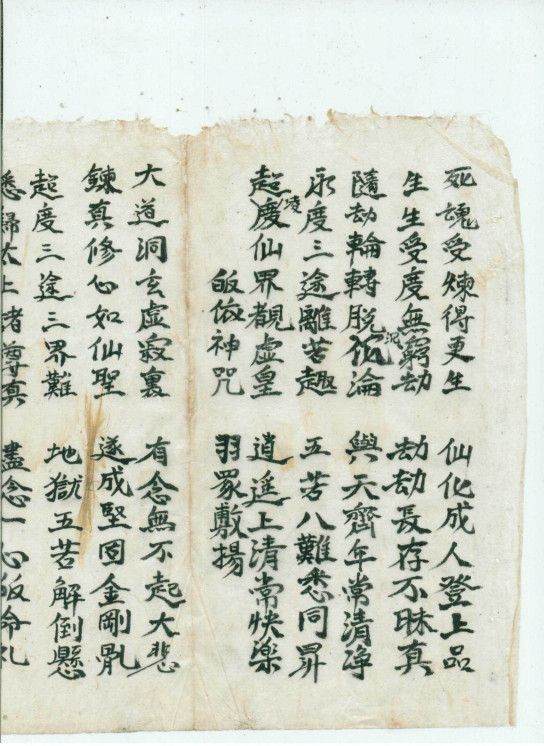 死魂受煉得更生 仙化成人登上品
生生受度無窮劫 劫劫長存不昧真
隨劫輪轉脫沉泥淪 與天齊年常清淨
永度三途離苦趣 五苦八難悉同昇
超度凌仙界觀虛皇 逍遥上清常快楽
皈依神咒 羽眾敷揚
大道洞玄虛寂裏 有念無不起大悲
鍊真修心如仙聖 遂成堅固金剛軋
超度三途三界難 地獄五苦解倒懸
悉歸太上諸尊真 盡念一心皈命礼